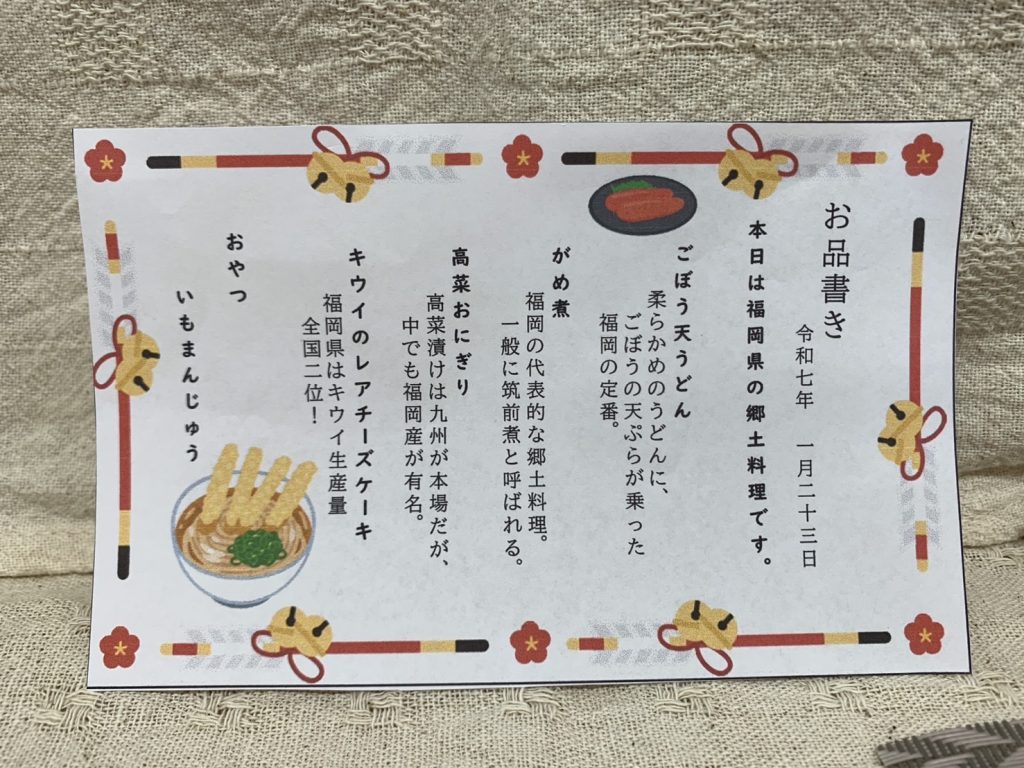 お品書き
令和七年 一月二十三日
本日は福岡県の郷土料理です。
ごぼう天うどん
柔らかめのうどんに、
ごぼうの天ぷらが乗った
福岡の定番。
がめ煮
福岡の代表的な郷土料理。
一般に筑前煮と呼ばれる。
高菜おにぎり
高菜漬けは九州が本場だが、
中でも福岡産が有名。
キウイのレアチーズケーキ
福岡県はキウイ生産量
全国二位！
おやつ
いもまんじゅう